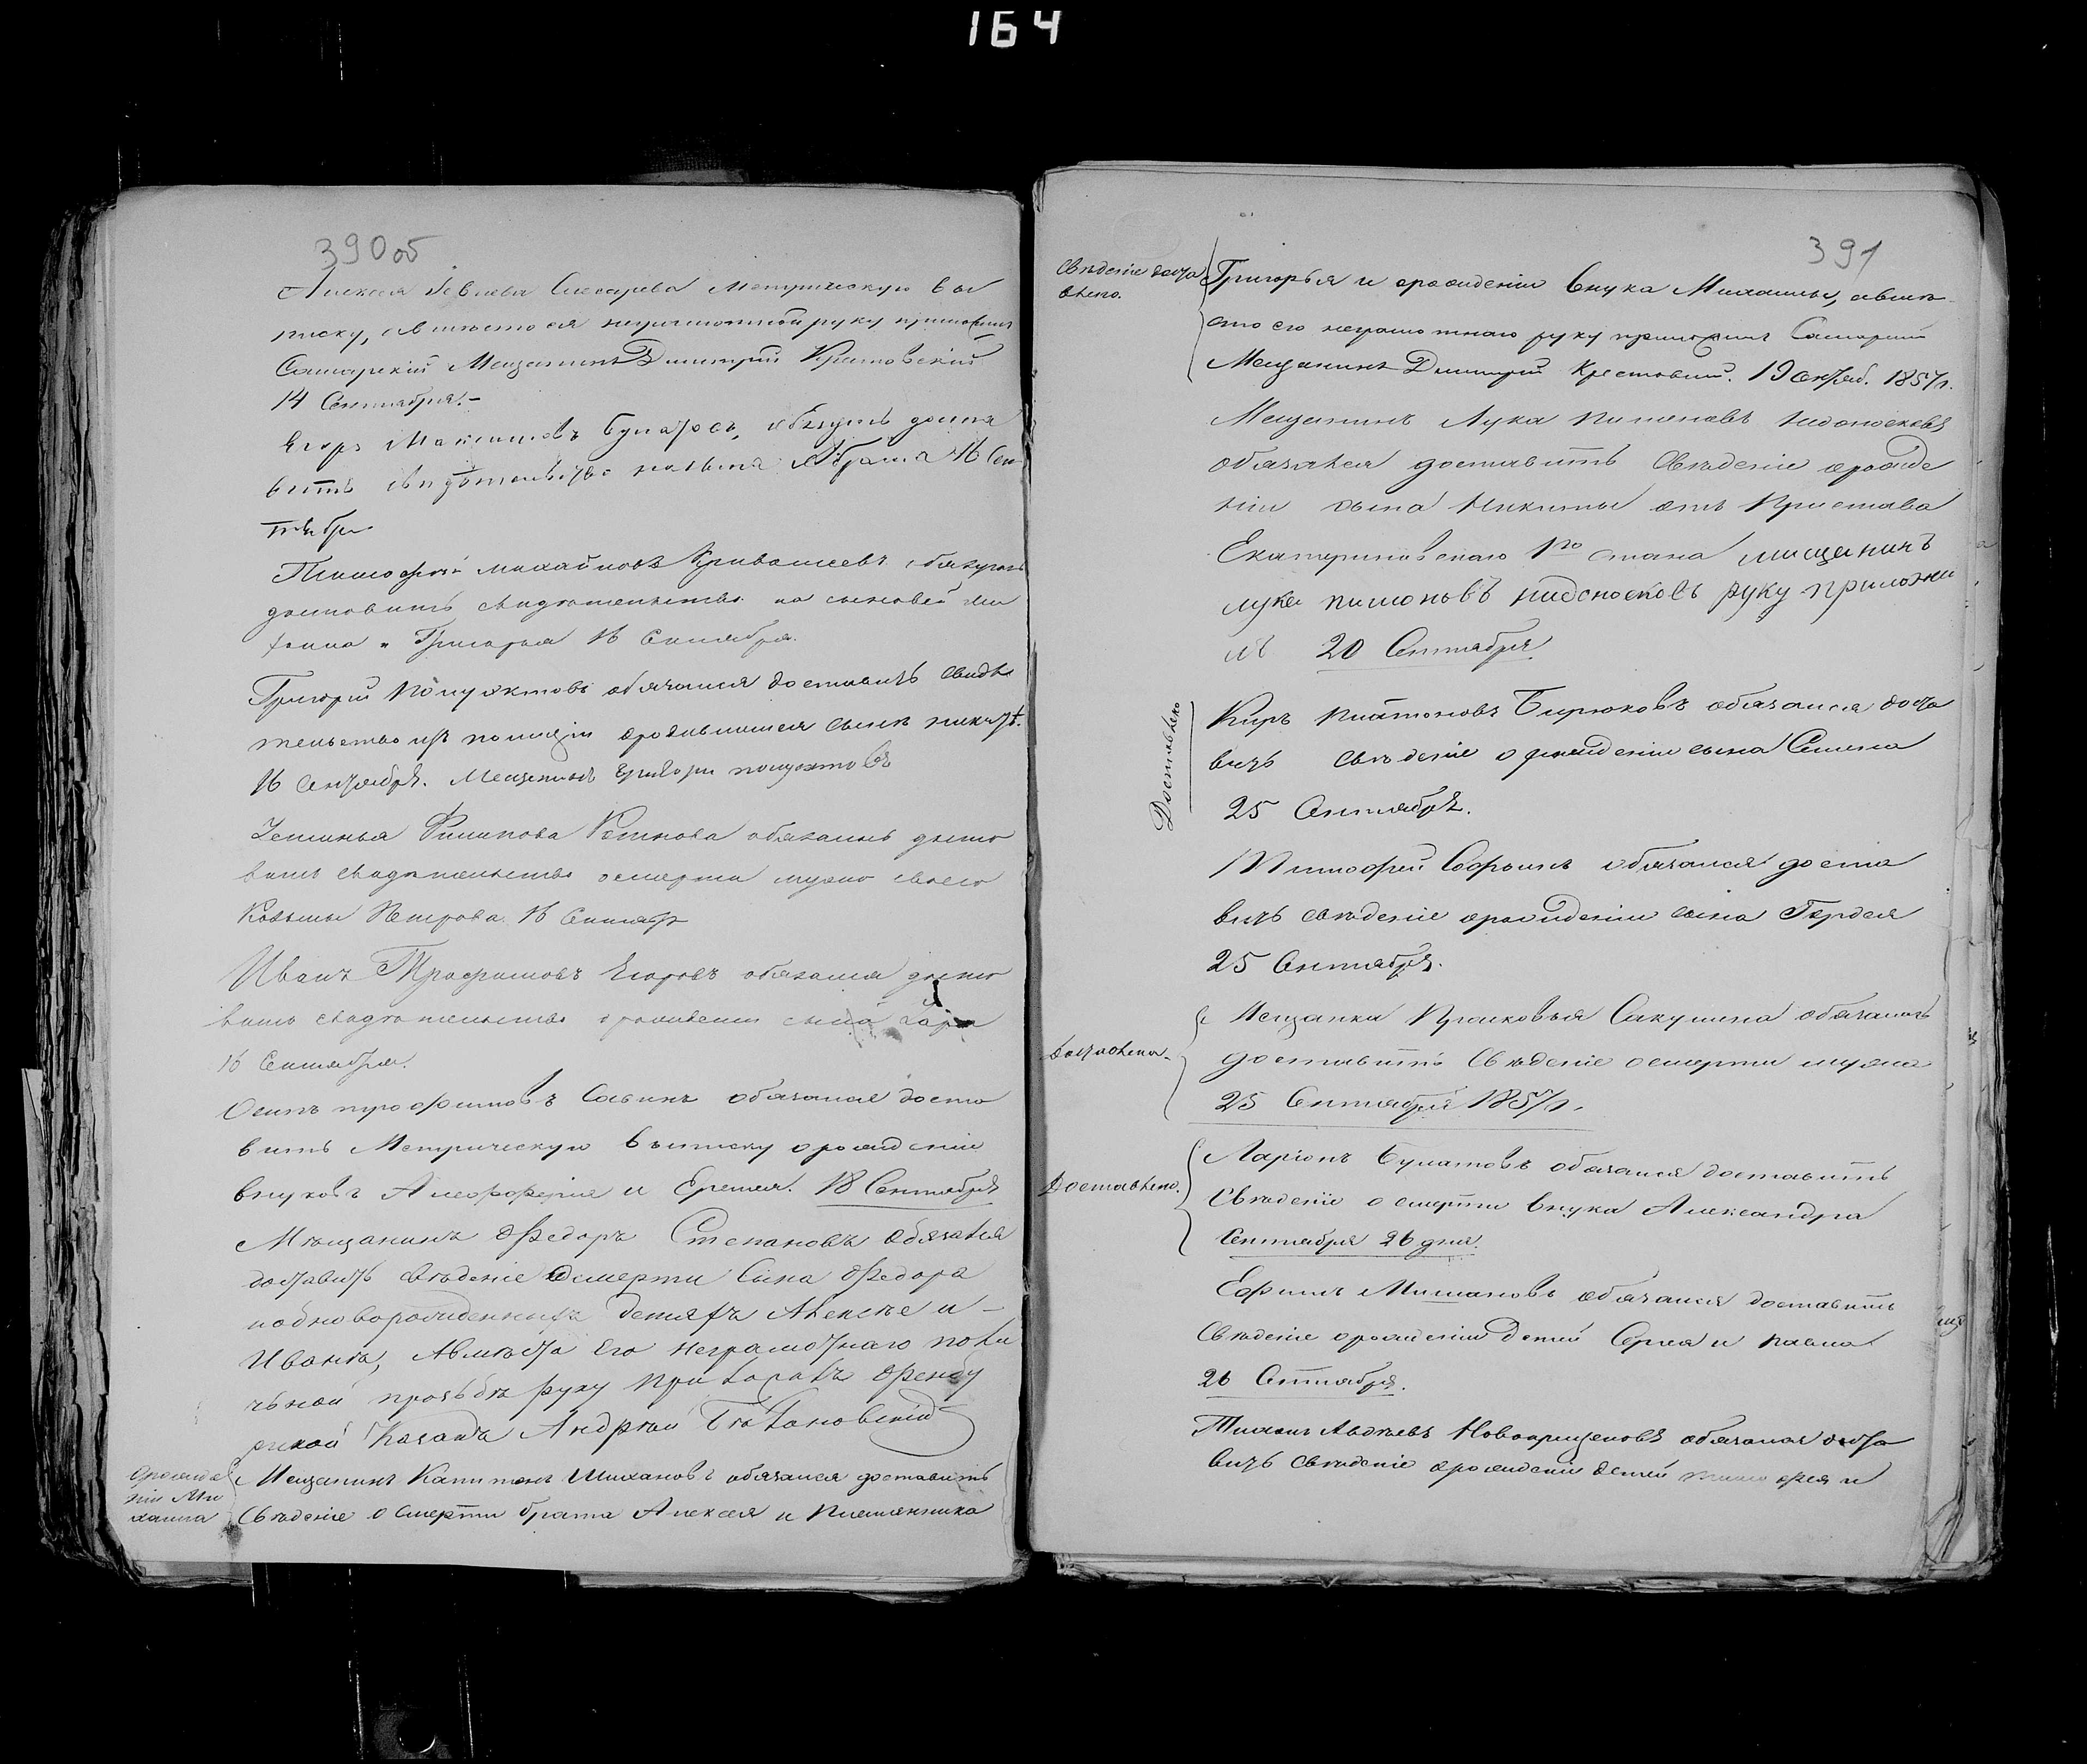 164
390 об
Алексея Слесарева Метрическую вы
писку, а вместо ея неграмотной руку приложил
Самарский Мещанинъ Димитрий Крестовский
14 Сентября.-
Егоръ Максимовъ Булатовъ, обязуюсь доста
вить свидетельство на сына Абрама 16 Сен
тября
Тимофей Михайловъ Кривошеевъ обязуюсь
доставить свидетельство на сыновей
и Григорья 16 Сентября.
Григорий Полуэктовъ обязался доставить свиде
тельство изъ полиции о родившимся сыне Никите.
16 Сентября. Мещанинъ Григори Полуэктовъ
Устинья Филипова обязалась доста
вить свидетельство о смерти мужа своего
Козьмы Петрова 16 Сентяб
Иванъ Трофимовъ Егоровъ обязался доста
вить свидетельство о рождении сына
16 Сентября.
Осипъ трофимовъ Савинъ обязался доста
вить Метрическую выписку о рождении
внуковъ и Еремея. 18 Сентября
Мещанинъ Федоръ Степановъ обязался
доставить сведение о смерти сына Федора
новорожденныхъ детяхъ Алексее и -
Иване, а вместо его неграмотнаго по ли
чьной прозьбе руку приложилъ Оренбу
ргской Казакъ Андрей
о рожде
нии Ми
хаила
Мещанинъ Капитонъ Шихановъ обязался доставить
Сведение о смерти брата Алексея и племянника
391
Сведение доста
влено.
Григорья и о рождении внука Михаилы, а вме
сто его неграмотнаго руку приложилъ Самарский
Мещанинъ Димитрий Крестовский. 19 Сентяб. 1857 г.
Мещанинъ Лука Пименовъ Недоносковъ
обязался доставить сведение о рожде
нии сына Никиты отъ Пристава
Екатериновскаго 1го стана мищининъ
лука пимоновъ нидоносковъ руку приложи
лъ 20 Сентября
Доставлено
Киръ Платоновъ Бирюковъ обязался доста
вить сведение о рождении сына Семена
25 Сентября.
Тимофей Софьинъ обязался доста
вить сведение о рождении сына Гордея
25 Сентября.
Доставлена.
Мещанка Прасковья Сакулина обязалась
доставить Сведение о смерти мужа
25 Сентября 1857 г.
Доставлено.
Ларионъ Булатовъ обязался доставить
Сведение о смерти внука Александра
Сентября 26 дня.
Ефимъ Мишановъ обязался доставить
Сведение о рождении детей Сергея и Павла
26 Сентября.
Тихонъ Авдеевъ Новокрещеновъ обязался доста
вить Сведение о рождении детей Тимофея и